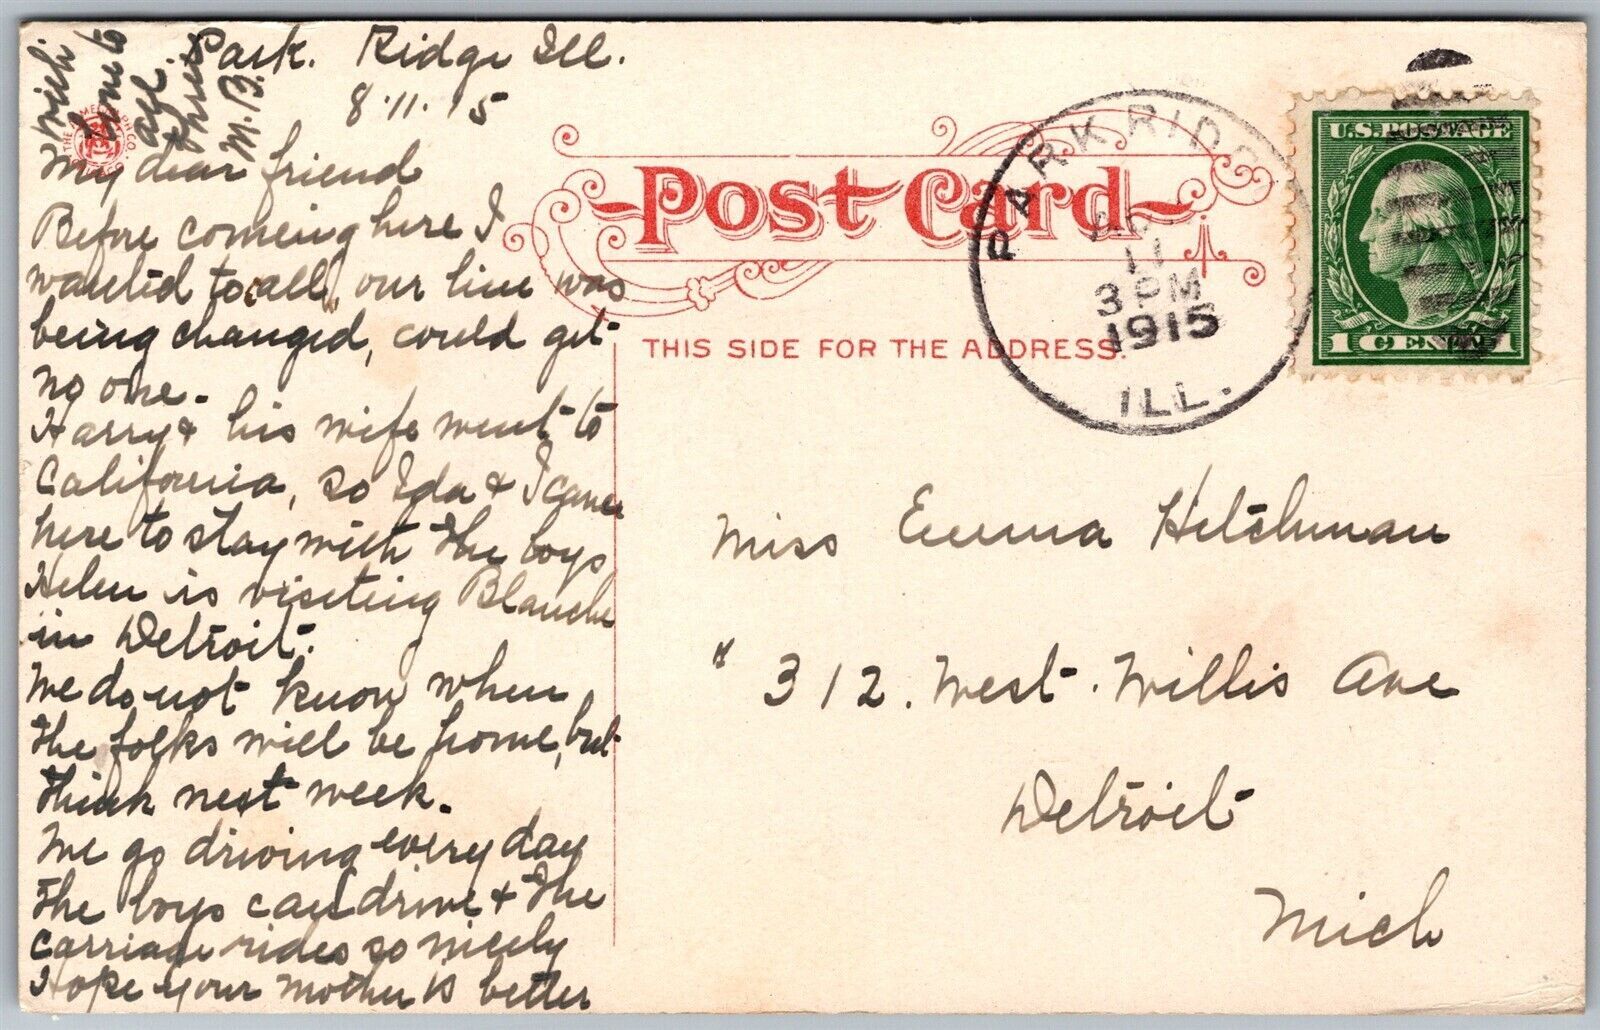 Park. Ridge Ill.
8.11.15
My dear friend
Before coming here I
wanted to call, our line was
being changed, could get
no one.
Harry & his wife went to
California, so Ida & I came
here to stay with the boys
Helen is visiting Blanche
in Detroit.
We do not know when
the folks will be home, but
think next week.
We go driving every day
the boys can drive & the
carriage rides so nicely
Hope your mother is better
with
love to
all.
M.B.
POST CARD
THIS SIDE FOR THE ADDRESS.
PARK RIDGE
11
3 PM
1915
ILL.
U.S. POSTAGE
1 CENT 1
Miss Emma Hitchman
# 312. West. Willis Ave
Detroit
Mich